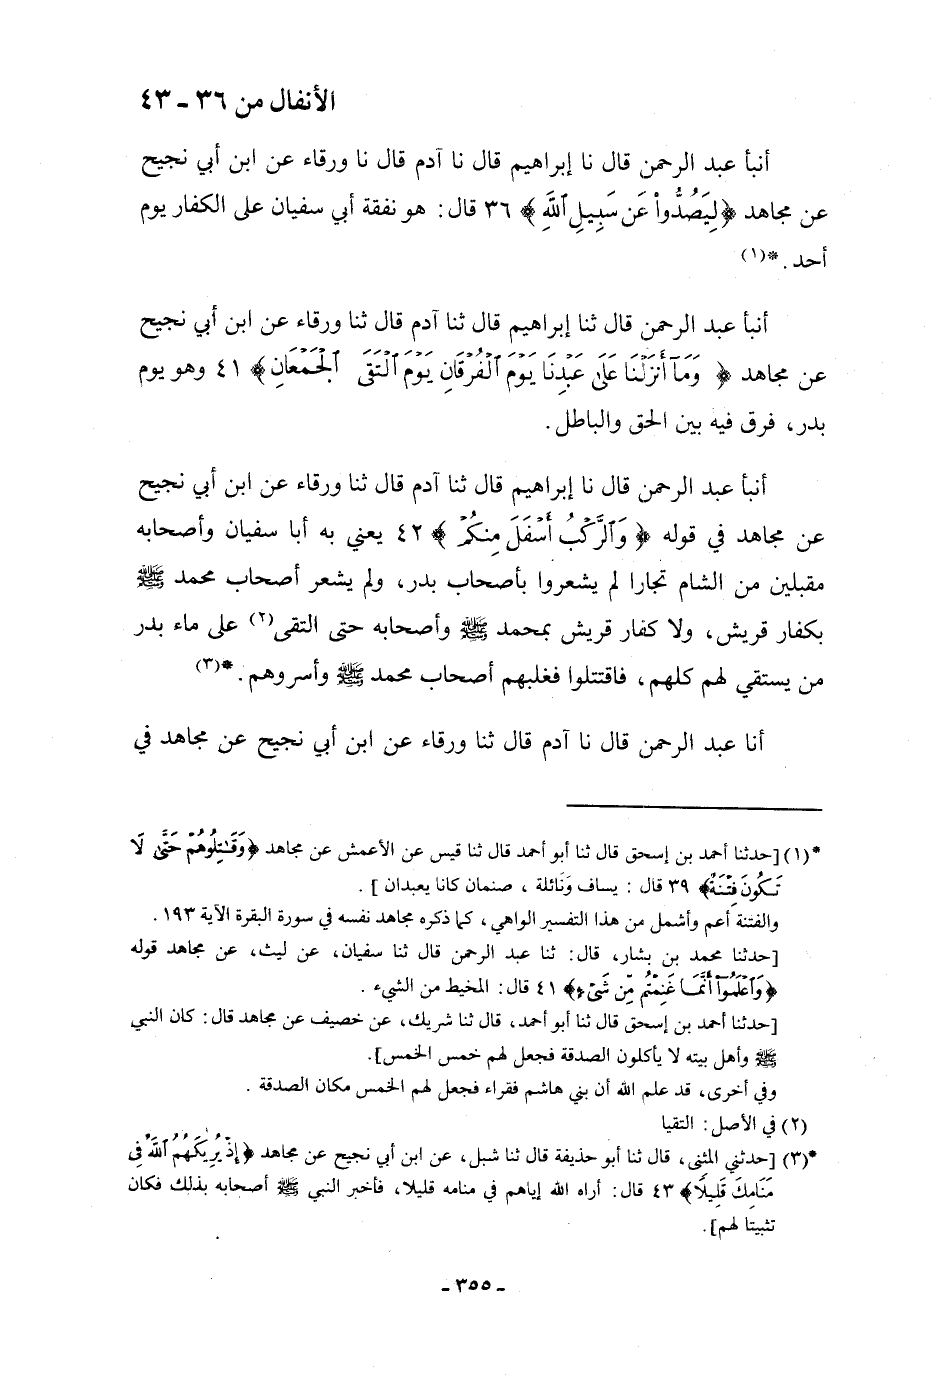 الأنفال من ٣٦ ـ ٤٣
أنبأ عبد الرحمن قال نا إبراهيم قال نا آدم قال نا ورقاء عن ابن أبي نجيح
عن مجاهد ﴿لِيَصُدُّواْ عَن سَبِيلِ ٱللَّهِ﴾ ٣٦ قال: هو نفقة أبي سفيان على الكفار يوم
أحد. *(١)
أنبأ عبد الرحمن قال ثنا إبراهيم قال ثنا آدم قال ثنا ورقاء عن ابن أبي نجيح
عن مجاهد ﴿ وَمَآ أَنزَلْنَا عَلَىٰ عَبْدِنَا يَوْمَ ٱلْفُرْقَانِ يَوْمَ ٱلْتَقَى ٱلْجَمْعَانِ﴾ ٤١ وهو يوم
بدر، فرق فيه بين الحق والباطل.
أنبأ عبد الرحمن قال نا إبراهيم قال ثنا آدم قال ثنا ورقاء عن ابن أبي نجيح
عن مجاهد في قوله ﴿ وَٱلرَّكْبُ أَسْفَلَ مِنكُمْ ﴾ ٤٢ يعني به أبا سفيان وأصحابه
مقبلين من الشام تجارا لم يشعروا بأصحاب بدر، ولم يشعر أصحاب محمد ﷺ
بكفار قريش، ولا كفار قريش بمحمد ﷺ وأصحابه حتى التقى(٢) على ماء بدر
من يستقي لهم كلهم، فاقتتلوا فغلبهم أصحاب محمد ﷺ وأسروهم. *(٣)
أنا عبد الرحمن قال نا آدم قال ثنا ورقاء عن ابن أبي نجيح عن مجاهد في
*(١) [حدثنا أحمد بن إسحق قال ثنا أبو أحمد قال ثنا قيس عن الأعمش عن مجاهد ﴿وَقَٰتِلُوهُمْ حَتَّىٰ لَا
تَكُونَ فِتْنَةٌ﴾ ٣٩ قال : يساف وَنَائلة ، صنمان كانا يعبدان ] .
والفتنة أعم وأشمل من هذا التفسير الواهي، كما ذكره مجاهد نفسه في سورة البقرة الآية ١٩٣ .
[حدثنا محمد بن بشار، قال: ثنا عبد الرحمن قال ثنا سفيان، عن ليث، عن مجاهد قوله
﴿وَٱعْلَمُوٓاْ أَنَّمَا غَنِمْتُم مِّن شَىْءٍ﴾ ٤١ قال: المخيط من الشيء .
[حدثنا أحمد بن إسحق قال ثنا أبو أحمد، قال ثنا شريك، عن خصيف عن مجاهد قال: كان النبي
ﷺ وأهل بيته لا يأكلون الصدقة فجعل لهم خمس الخمس].
وفي أخرى، قد علم الله أن بني هاشم فقراء فجعل لهم الخمس مكان الصدقة .
(٢) في الأصل: التقيا
*(٣) [حدثني المثنى، قال ثنا أبو حذيفة قال ثنا شبل، عن ابن أبي نجيح عن مجاهد ﴿إِذْ يُرِيكَهُمُ ٱللَّهُ فِى
مَنَامِكَ قَلِيلًا﴾ ٤٣ قال: أراه الله إياهم في منامه قليلا، فأخبر النبي ﷺ أصحابه بذلك فكان
تثبيتا لهم].
ـ ٣٥٥ ـ